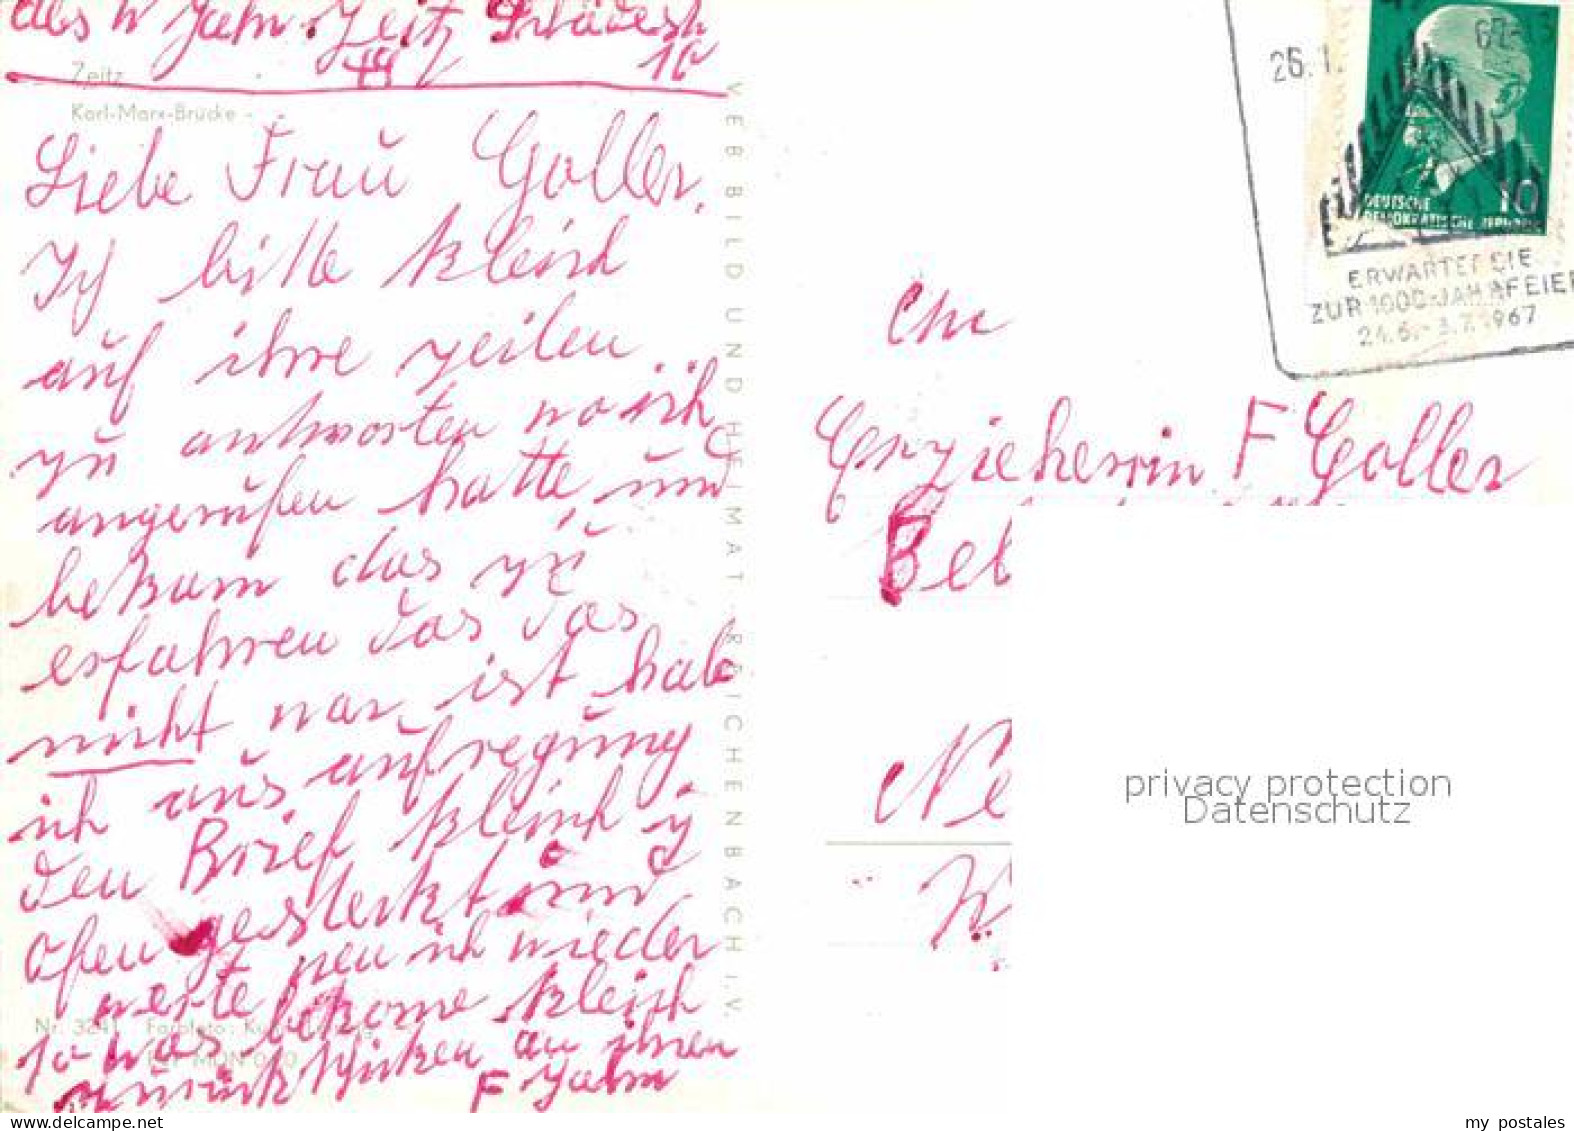 abs W Jahn. Zeitz
44 10
Zeitz
Karl-Marx-Brücke
Liebe Frau Goller.
Ich bitte kleich
auf ihre zeilen
zu antworten wo ich
angerufen hatte und
bekam das zu
erfahren das das
nicht war ist hab
ich aus aufregung
den Brief kleich
ofen gesteckt und
werte wen ich wieder
so was bekome kleich
zurück schicken an ihnen
F Jahn
Nr. 3241
VEB BILD UND HEIMAT REICHENBACH I. V.
26.1. 67-13
10
DEUTSCHE
DEMOKRATISCHE REPUBLIK
ERWARTET SIE
ZUR 1000-JAHRFEIER
24.6.-3.7.1967
An
Erzieherin F Goller
Bet
Ne
W
privacy protection
Datenschutz
my postales